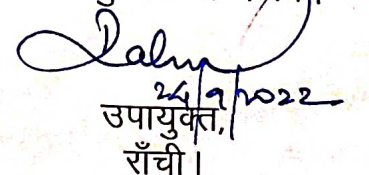 24/9/2022
उपायुक्त,
राँची।